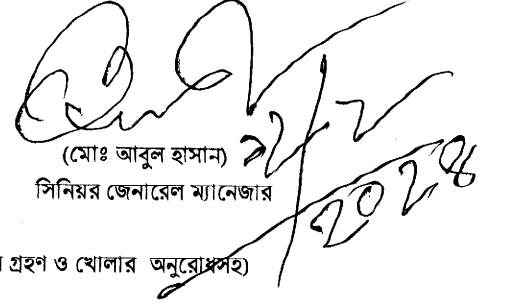 (মোঃ আবুল হাসান)
সিনিয়র জেনারেল ম্যানেজার
২০২৪
গ্রহণ ও খোলার অনুরোধসহ)